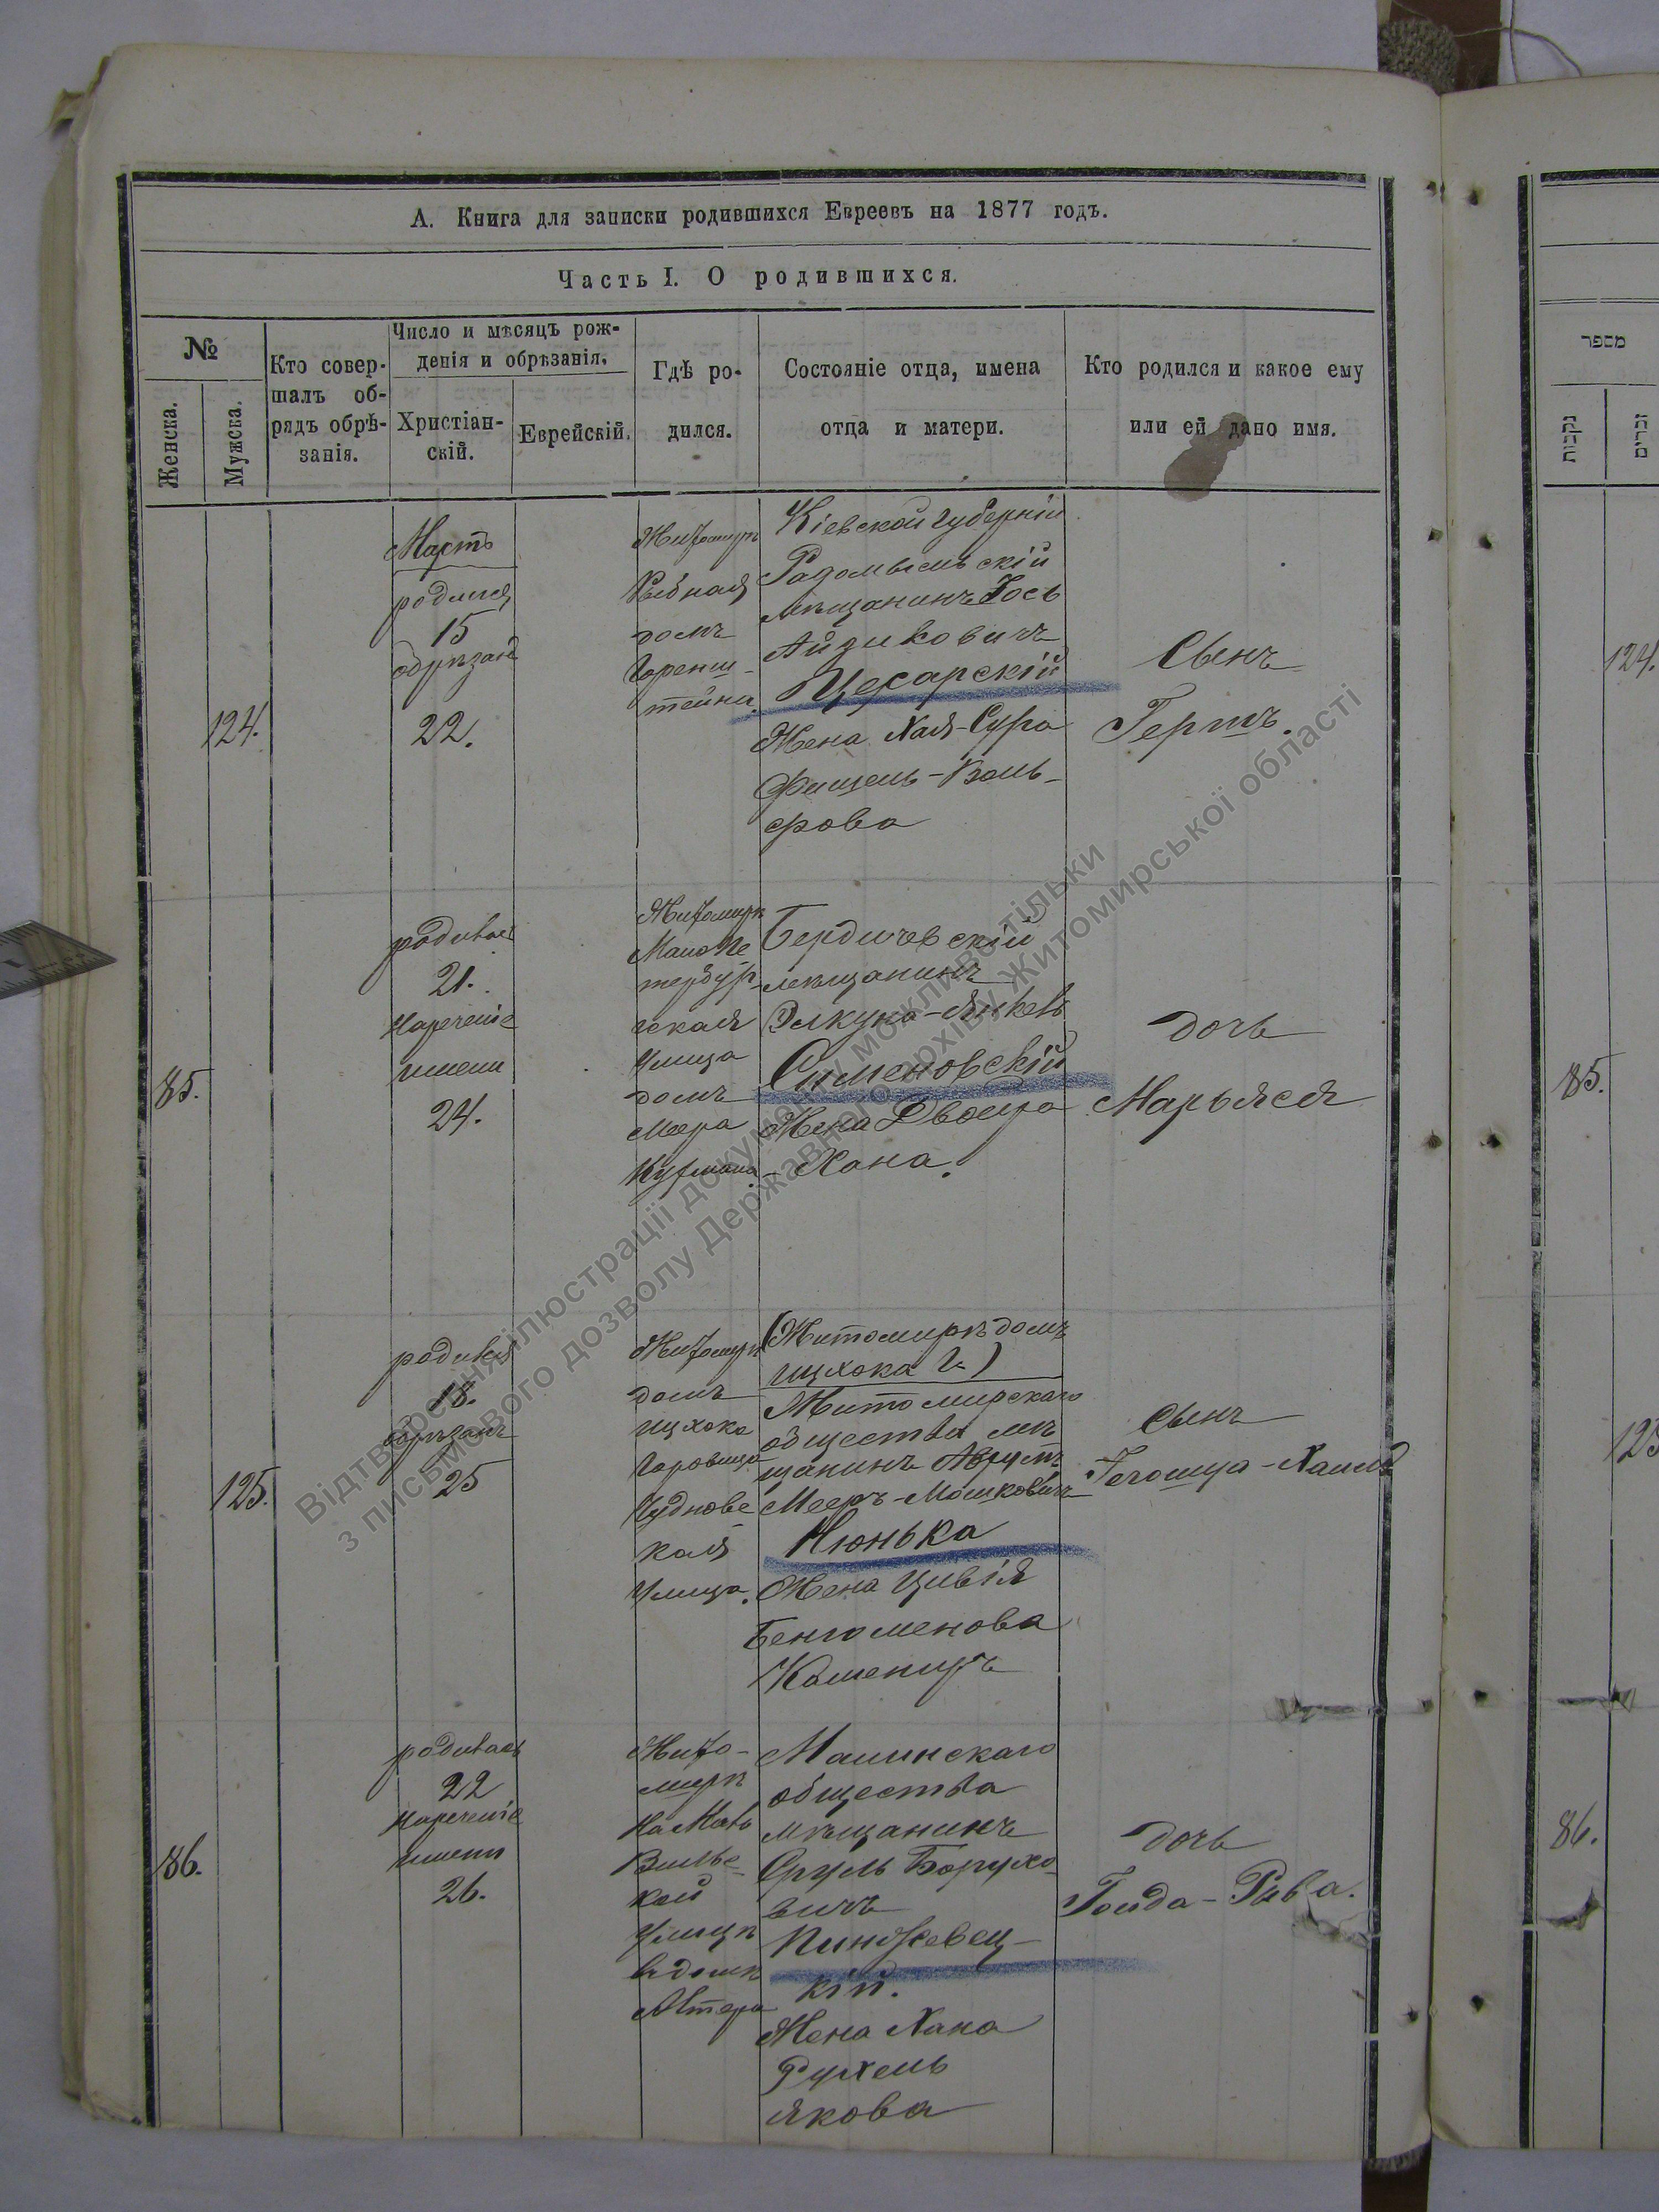 А. Книга для записки родившихся Евреевъ на 1877 годъ.
Часть I. О родившихся.
№
Женска.
Мужска.
Кто совер-
шалъ об-
рядъ обрѣ-
занія.
Число и мѣсяцъ рож-
денія и обрѣзанія.
Христіан-
скій.
Еврейскій.
Гдѣ ро-
дился.
Состояніе отца, имена
отца и матери.
Кто родился и какое ему
или ей дано имя.
124.
Мартъ
родился
15
обрѣзанъ
22.
Житомиръ
Рыбная
домъ
Горенш-
тейна.
Кіевской губерніи
Радомысльскій
мѣщанинъ Іось
Айзиковичъ
Цехарскій
Жена Хая-Сура
Фишель-Воль-
фова
Сынъ
Гершъ.
85.
родилась
21.
Нареченіе
имени
24.
Житомиръ
Мало Пе
тербур-
гская
Улица
домъ
Меера
Бердичевскій
мѣщанинъ
Элкуна-Янкель
Сименовскій
Жена Двойра
-Хана.
дочь
Марьяся
125.
родился
18.
обрѣзанъ
25
Житомиръ
домъ
Ицхока
Горовица
Чуднове
кая
Улица.
(Житомиръ домъ
Ицхока Г.)
Житомирскаго
общества мѣ
щанинъ
Мееръ-Мошковичъ
Нюнька
Жена Цивія
Бенюменова
Камениръ
Сынъ
86.
родилась
22
Нареченіе
имени
26.
Жито-
миръ
На Мало
Вильс-
кой
Улицѣ
въ домѣ
Алтера
Малинскаго
общества
мѣщанинъ
Сруль Борухо-
вичъ
кій.
Жена Хана
Рухель
Якова
дочь
Гольда-Рива.
מספר
נקבות
זכרים
124.
85.
125
86.
Відтворення ілюстрації документу можливо тільки
з письмового дозволу Державного архіву Житомирської області